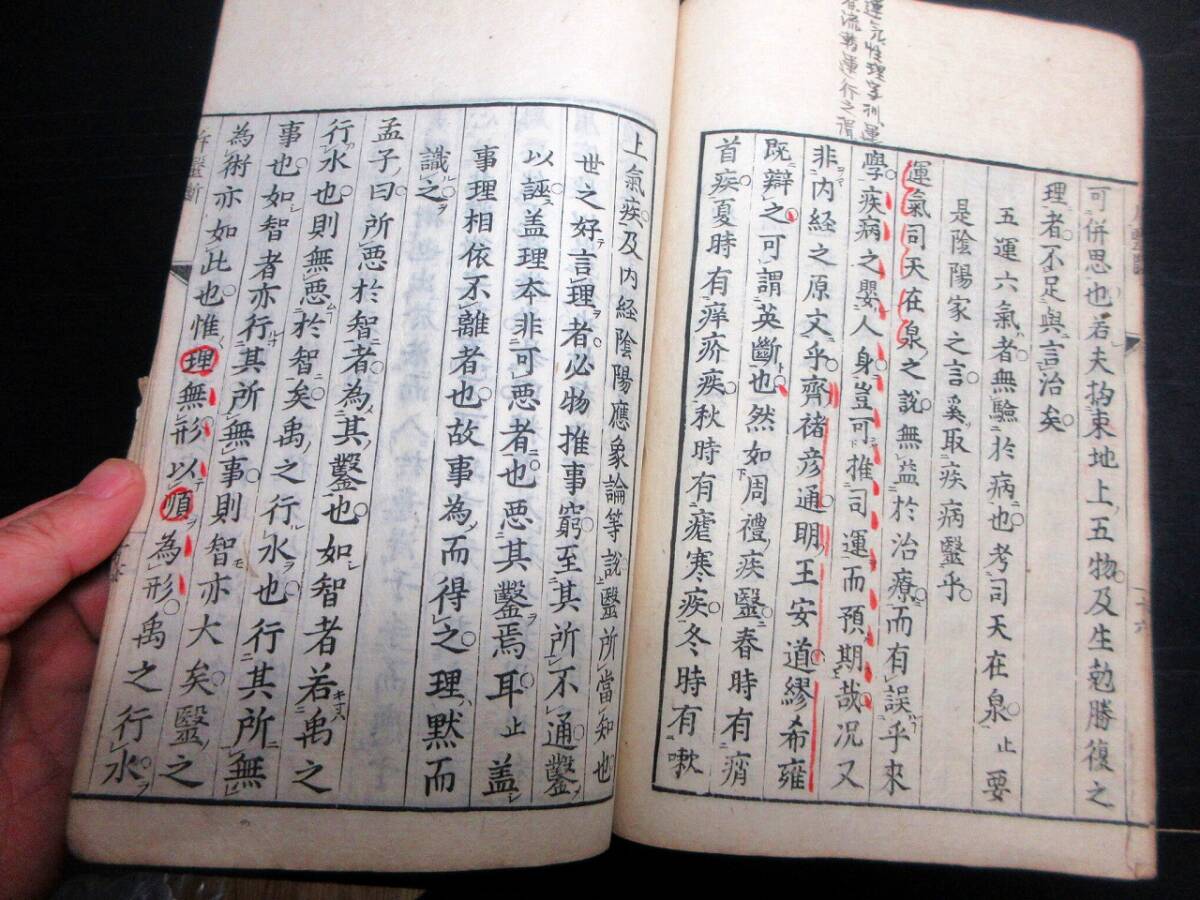 運气性理等刋運
流轉運行之謂
可併思也若夫拘束地上五物及生勉勝復之
理者不足與言治矣
五運六氣者無驗於病也考司天在泉止要
是陰陽家之言奚取疾病醫乎
運氣司天在泉之説無益於治療而有誤乎來
學疾病之嬰人身豈可推司運而預期哉况又
非内経之原文乎齊褚彦通明王安道繆希雍
既辯之可謂英斷也然如周禮疾醫春時有痟
首疾夏時有痒疥疾秋時有瘧寒疾冬時有嗽
上氣疾及内経陰陽應象論等説醫所當知也
世之好言理者必物推事窮至其所不通鑿
以誣盖理本非可悪者也悪其鑿焉耳止盖
事理相依不離者也故事為而得之理黙而
識之
孟子曰所悪於智者為其鑿也如智者若禹之
行水也則無悪於智矣禹之行水也行其所無
事也如智者亦行其所無事則智亦大矣醫之
為術亦如此也惟理無形以順為形禹之行水
醫斷